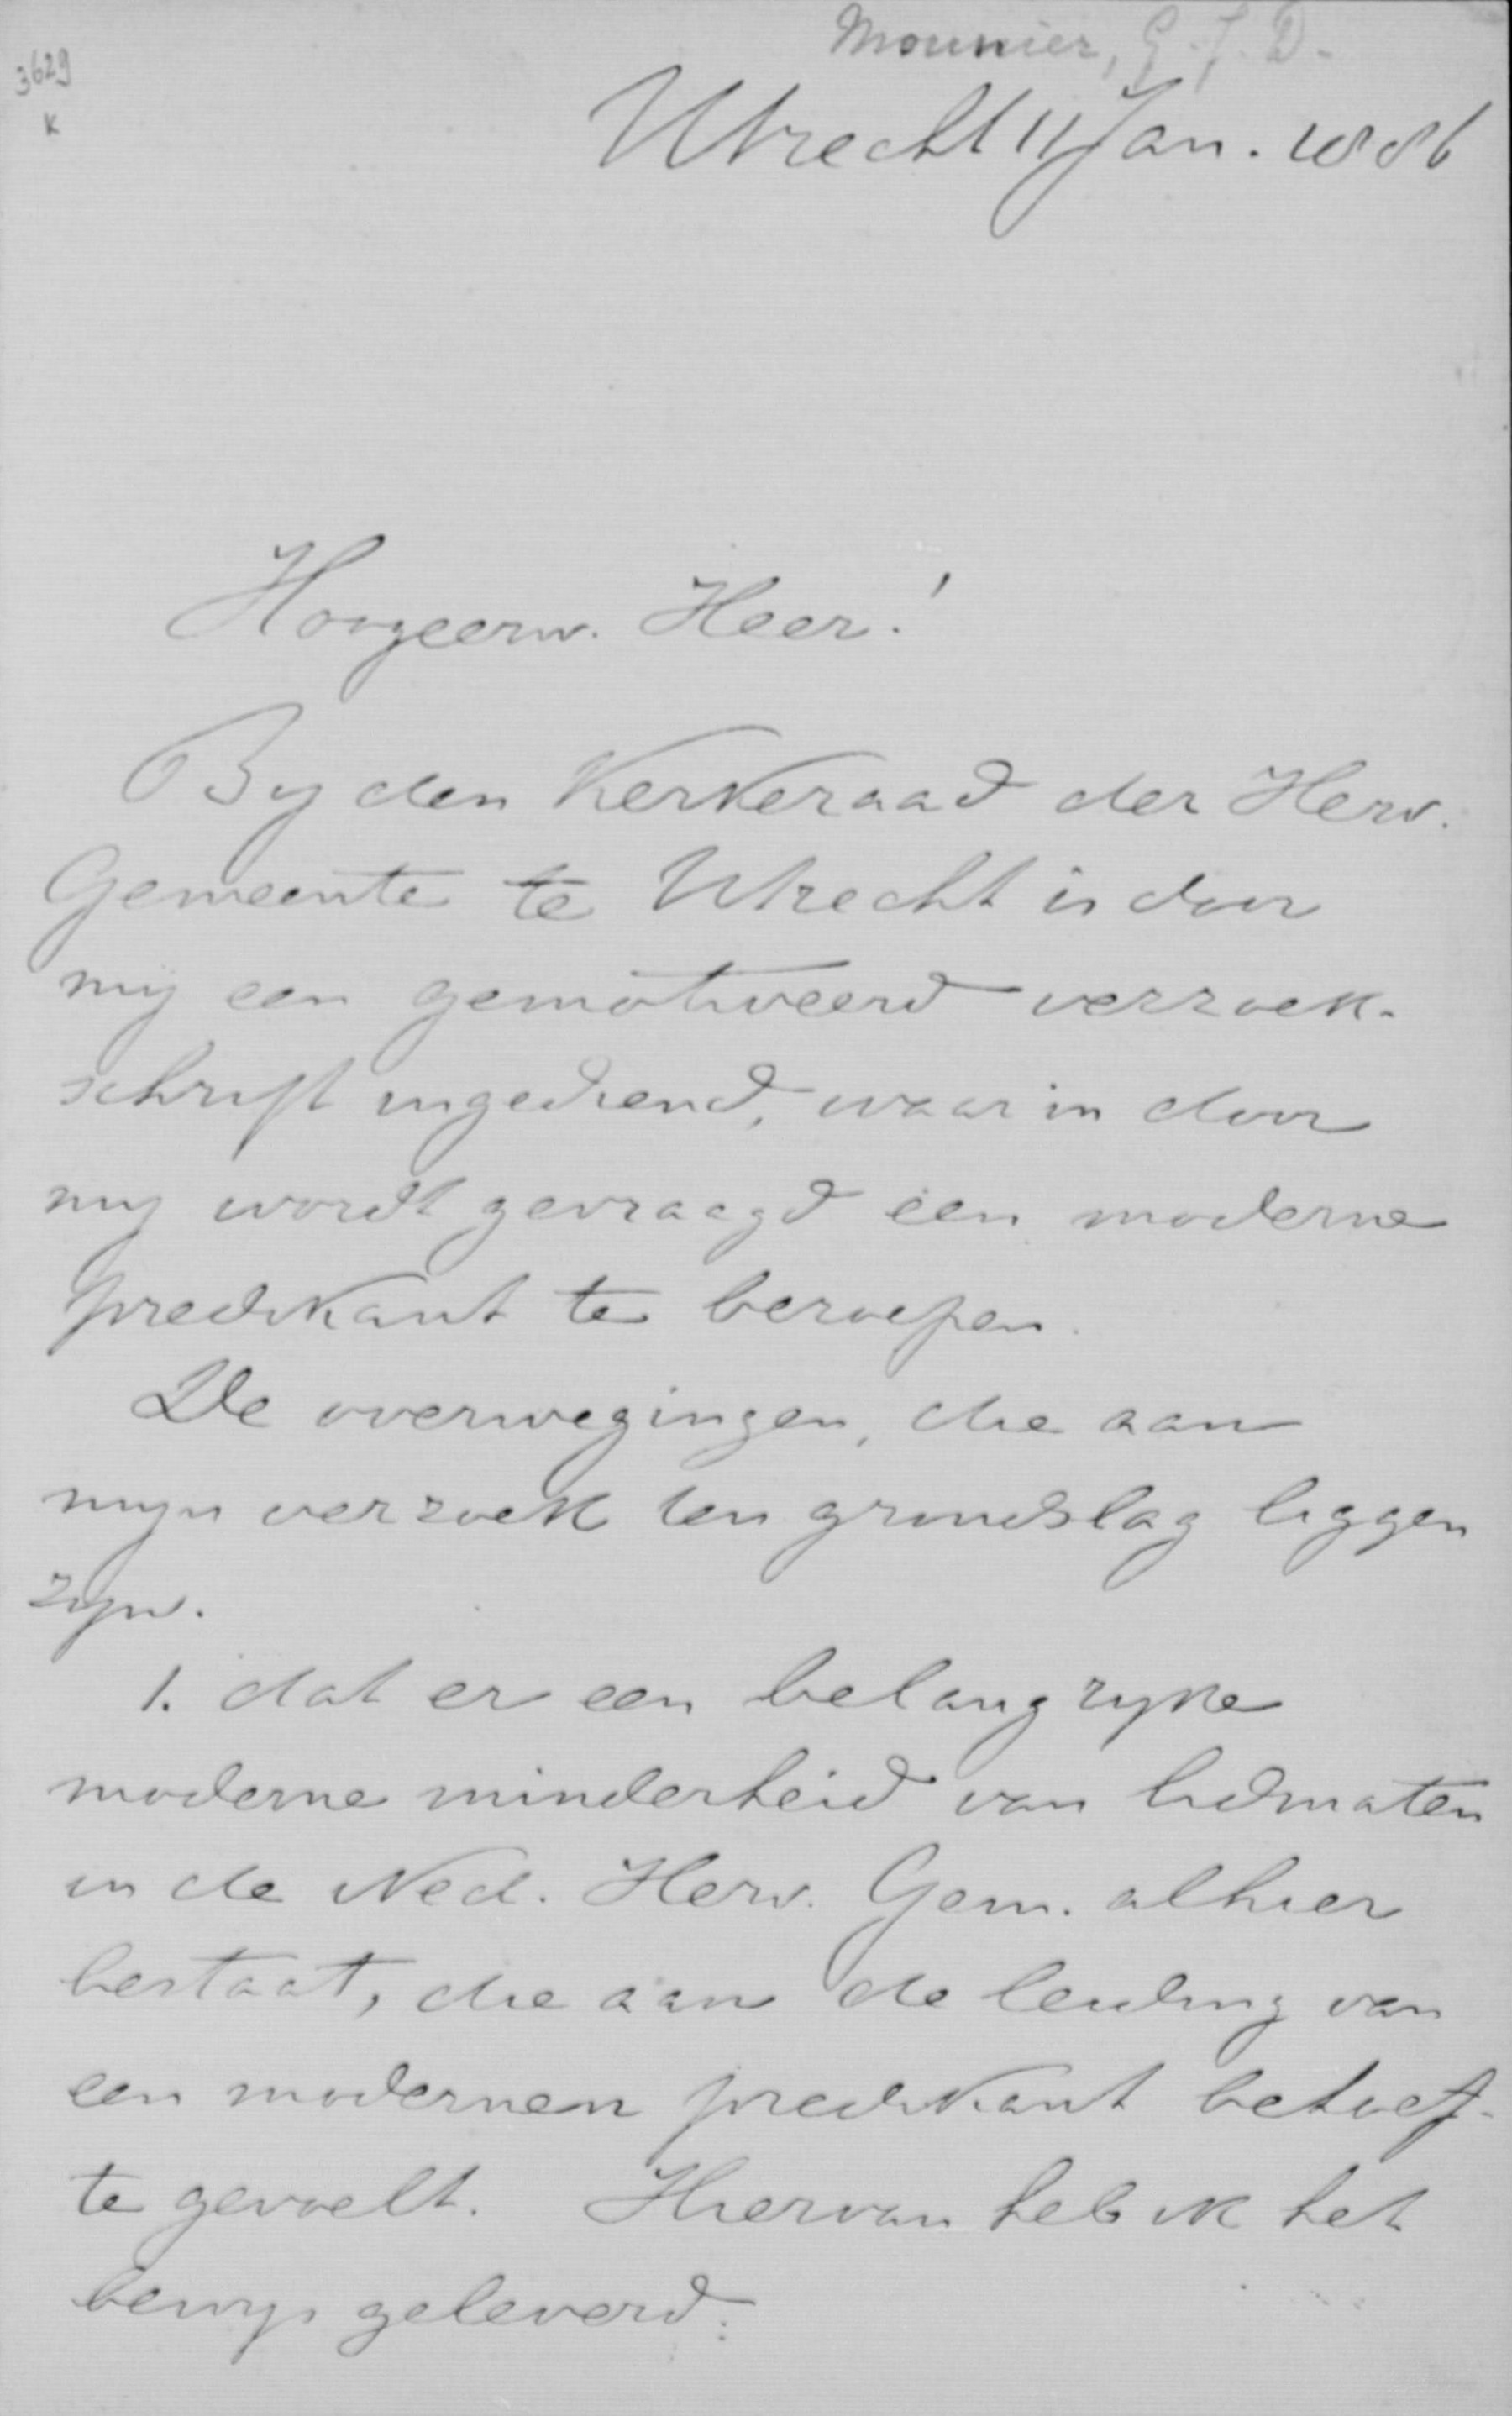 Mounier, G. J. D.
3629
K
Utrecht 11 Jan. 1886
Hoogeerw. Heer!
By den Kerkeraad der Herv.
Gemeente te Utrecht is door
my een gemotiveerd verzoek-
schrift ingediend, waarin door
my wordt gevraagd een moderne
predikant te beroepen.
De overwegingen, die aan
myn verzoek ten grondslag liggen
zyn.
1. dat er een belangryke
moderne minderheid van lidmaten
in de Ned. Herv. Gem. alhier
bestaat, die aan de leiding van
een modernen predikant behoef-
te gevoelt. Hiervan heb ik het
bewys geleverd: